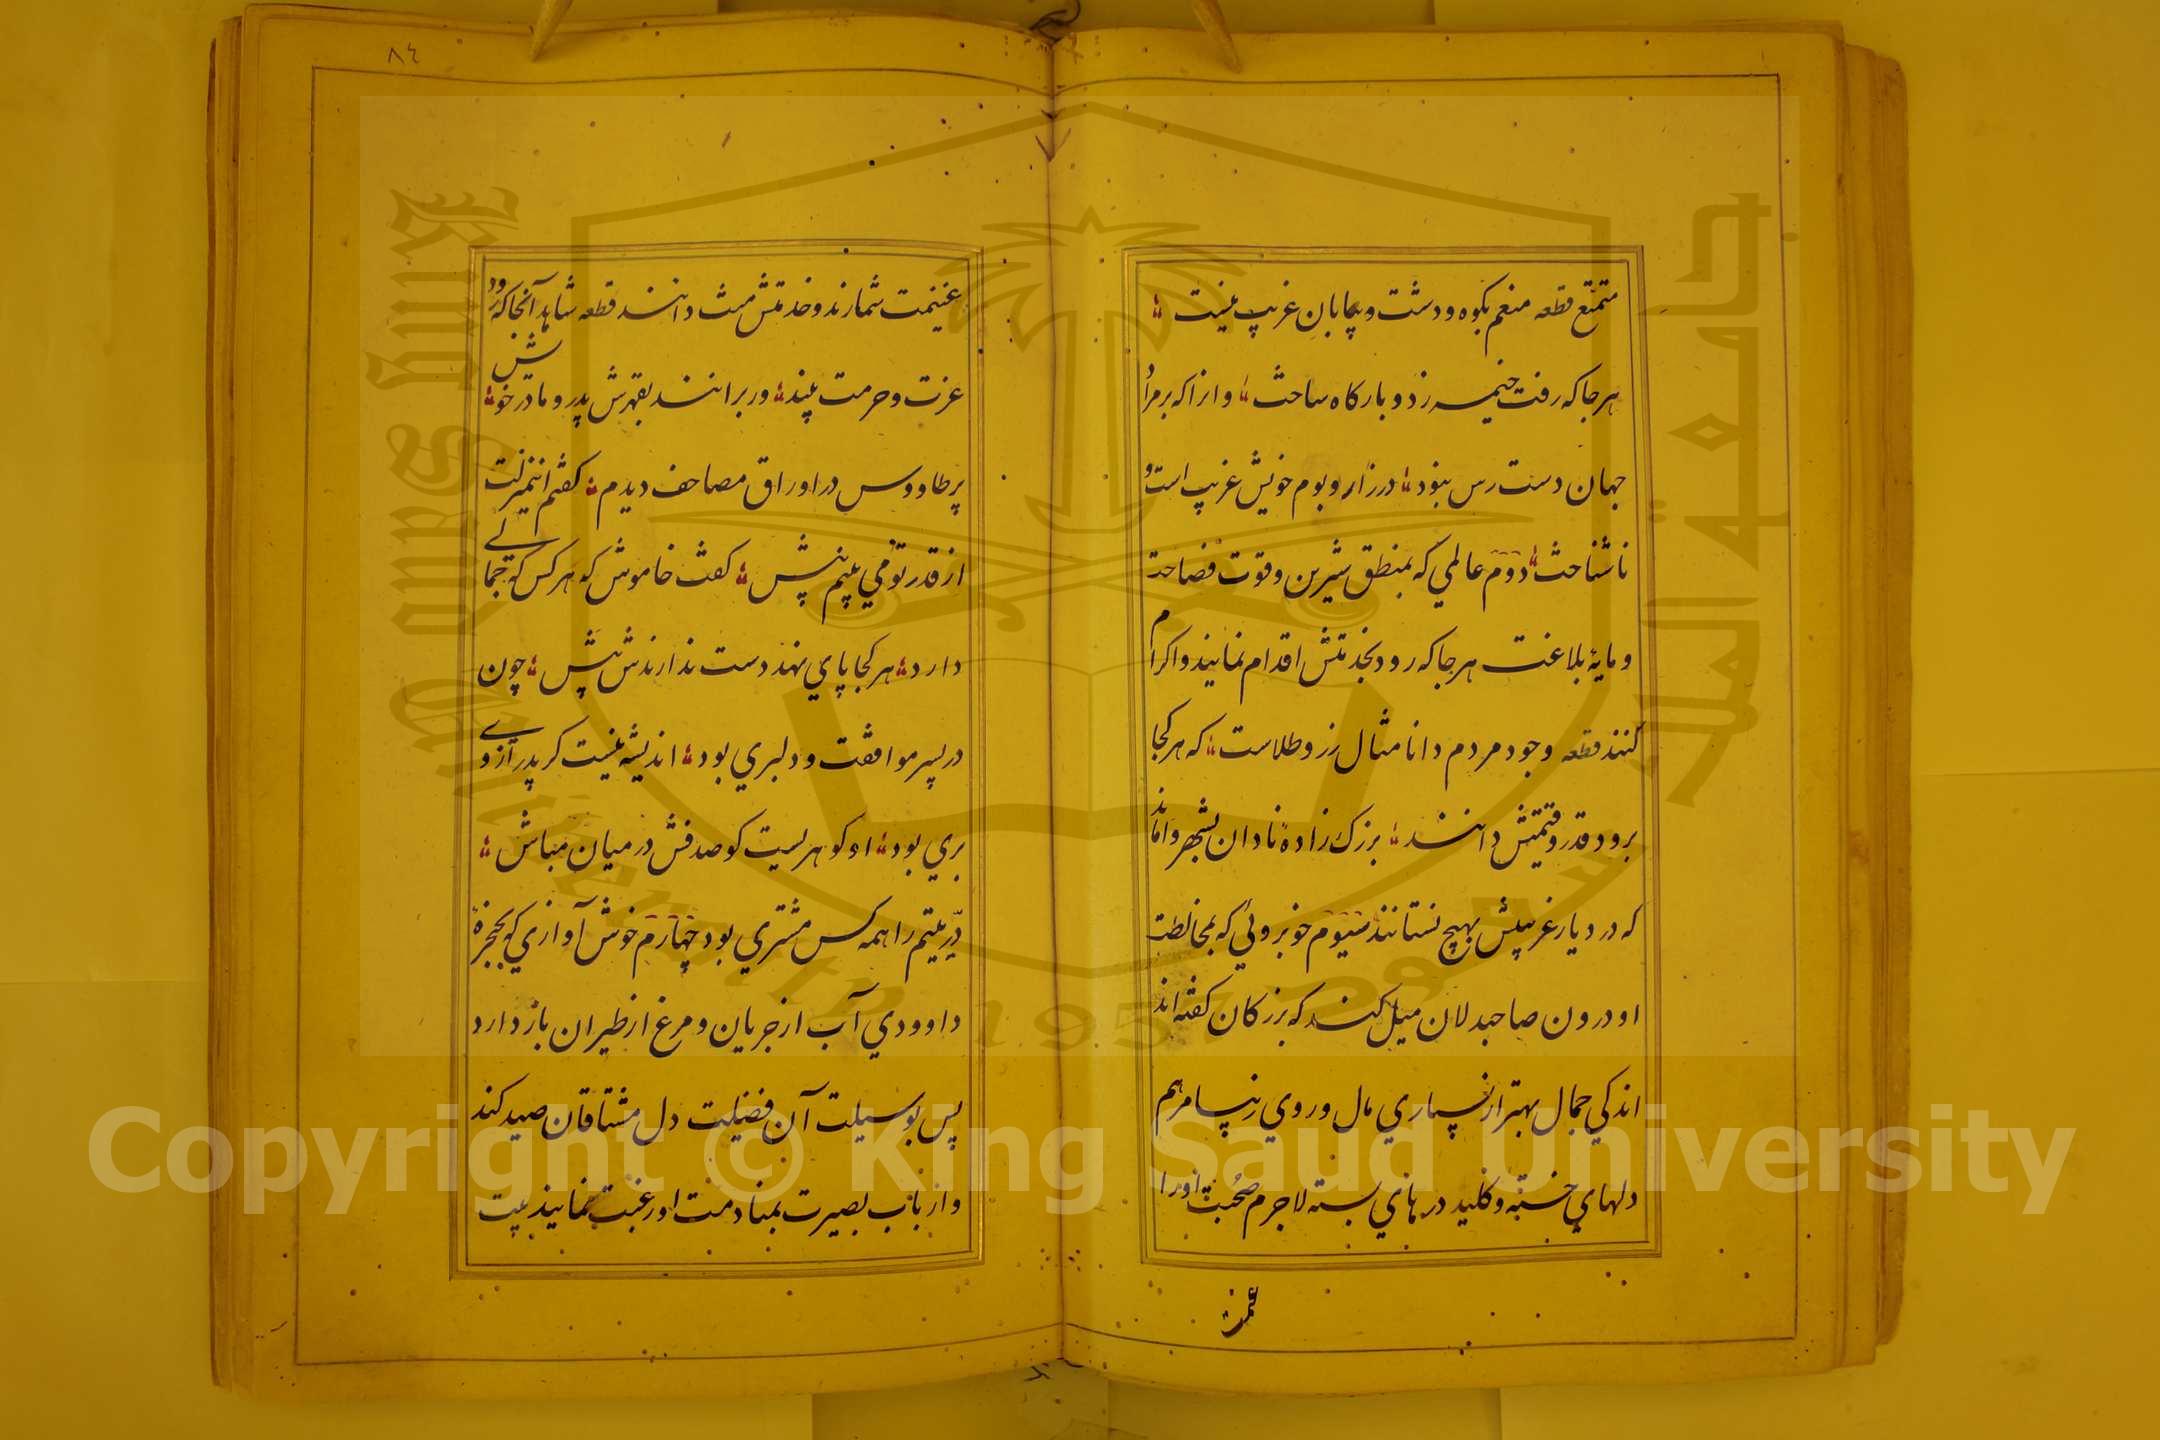 متمتع قطعه منعم بكوه و دشت و بيابان غريب نيست
هر جا كه رفت خيمه زد و باركاه ساخت وانرا كه بر مراد
جهان دست رس نبود در زاد و بوم خويش غريب است و
ناشناخت دوم عالمي كه بمنطق شيرين و قوت فصاحت
و مايه بلاغت هر جا كه رود بخدمتش اقدام نمايند و اكرام
كنند قطعه وجود مردم دانا مثال زر و طلاست كه هر كجا
برود قدر و قيمتش دانند بزرك زاده نادان بشهر واماند
كه در ديار غريبش بهيچ نستانند سيوم خوبروئي كه بمخالطت
او درون صاحبدلان ميل كند كه بزركان كفته اند
اندكي جمال بهتر از بسياري مال و روي زيبا مرهم
دلهاي خسته و كليد درهاي بسته لاجرم صحبت او را
غنيمت شمارند و خدمتش منت دانند قطعه شاهد آنجا كه رود
عزت و حرمت بيند ور برانند بقهرش پدر و مادر خويش
پر طاووس در اوراق مصاحف ديدم كفتم اين منزلت
از قدر تو مي بينم بيش كفت خاموش كه هر كس كه جمالي
دارد هر كجا پاي نهد دست ندارندش پيش چون
در پسر موافقت و دلبري بود انديشه نيست كر پدر از وي
بري بود او كوهريست كو صدفش در ميان مباش
در يتيم را همه كس مشتري بود چهارم خوش آوازي كه بحنجره
داوودي آب از جريان و مرغ از طيران باز دارد
پس بوسيلت آن فضيلت دل مشتاقان صيد كند
و ارباب بصيرت بمنادمت او رغبت نمايند بيت
٨٤
جامعة الملك سعود
King Saud University
1957
Copyright © King Saud University